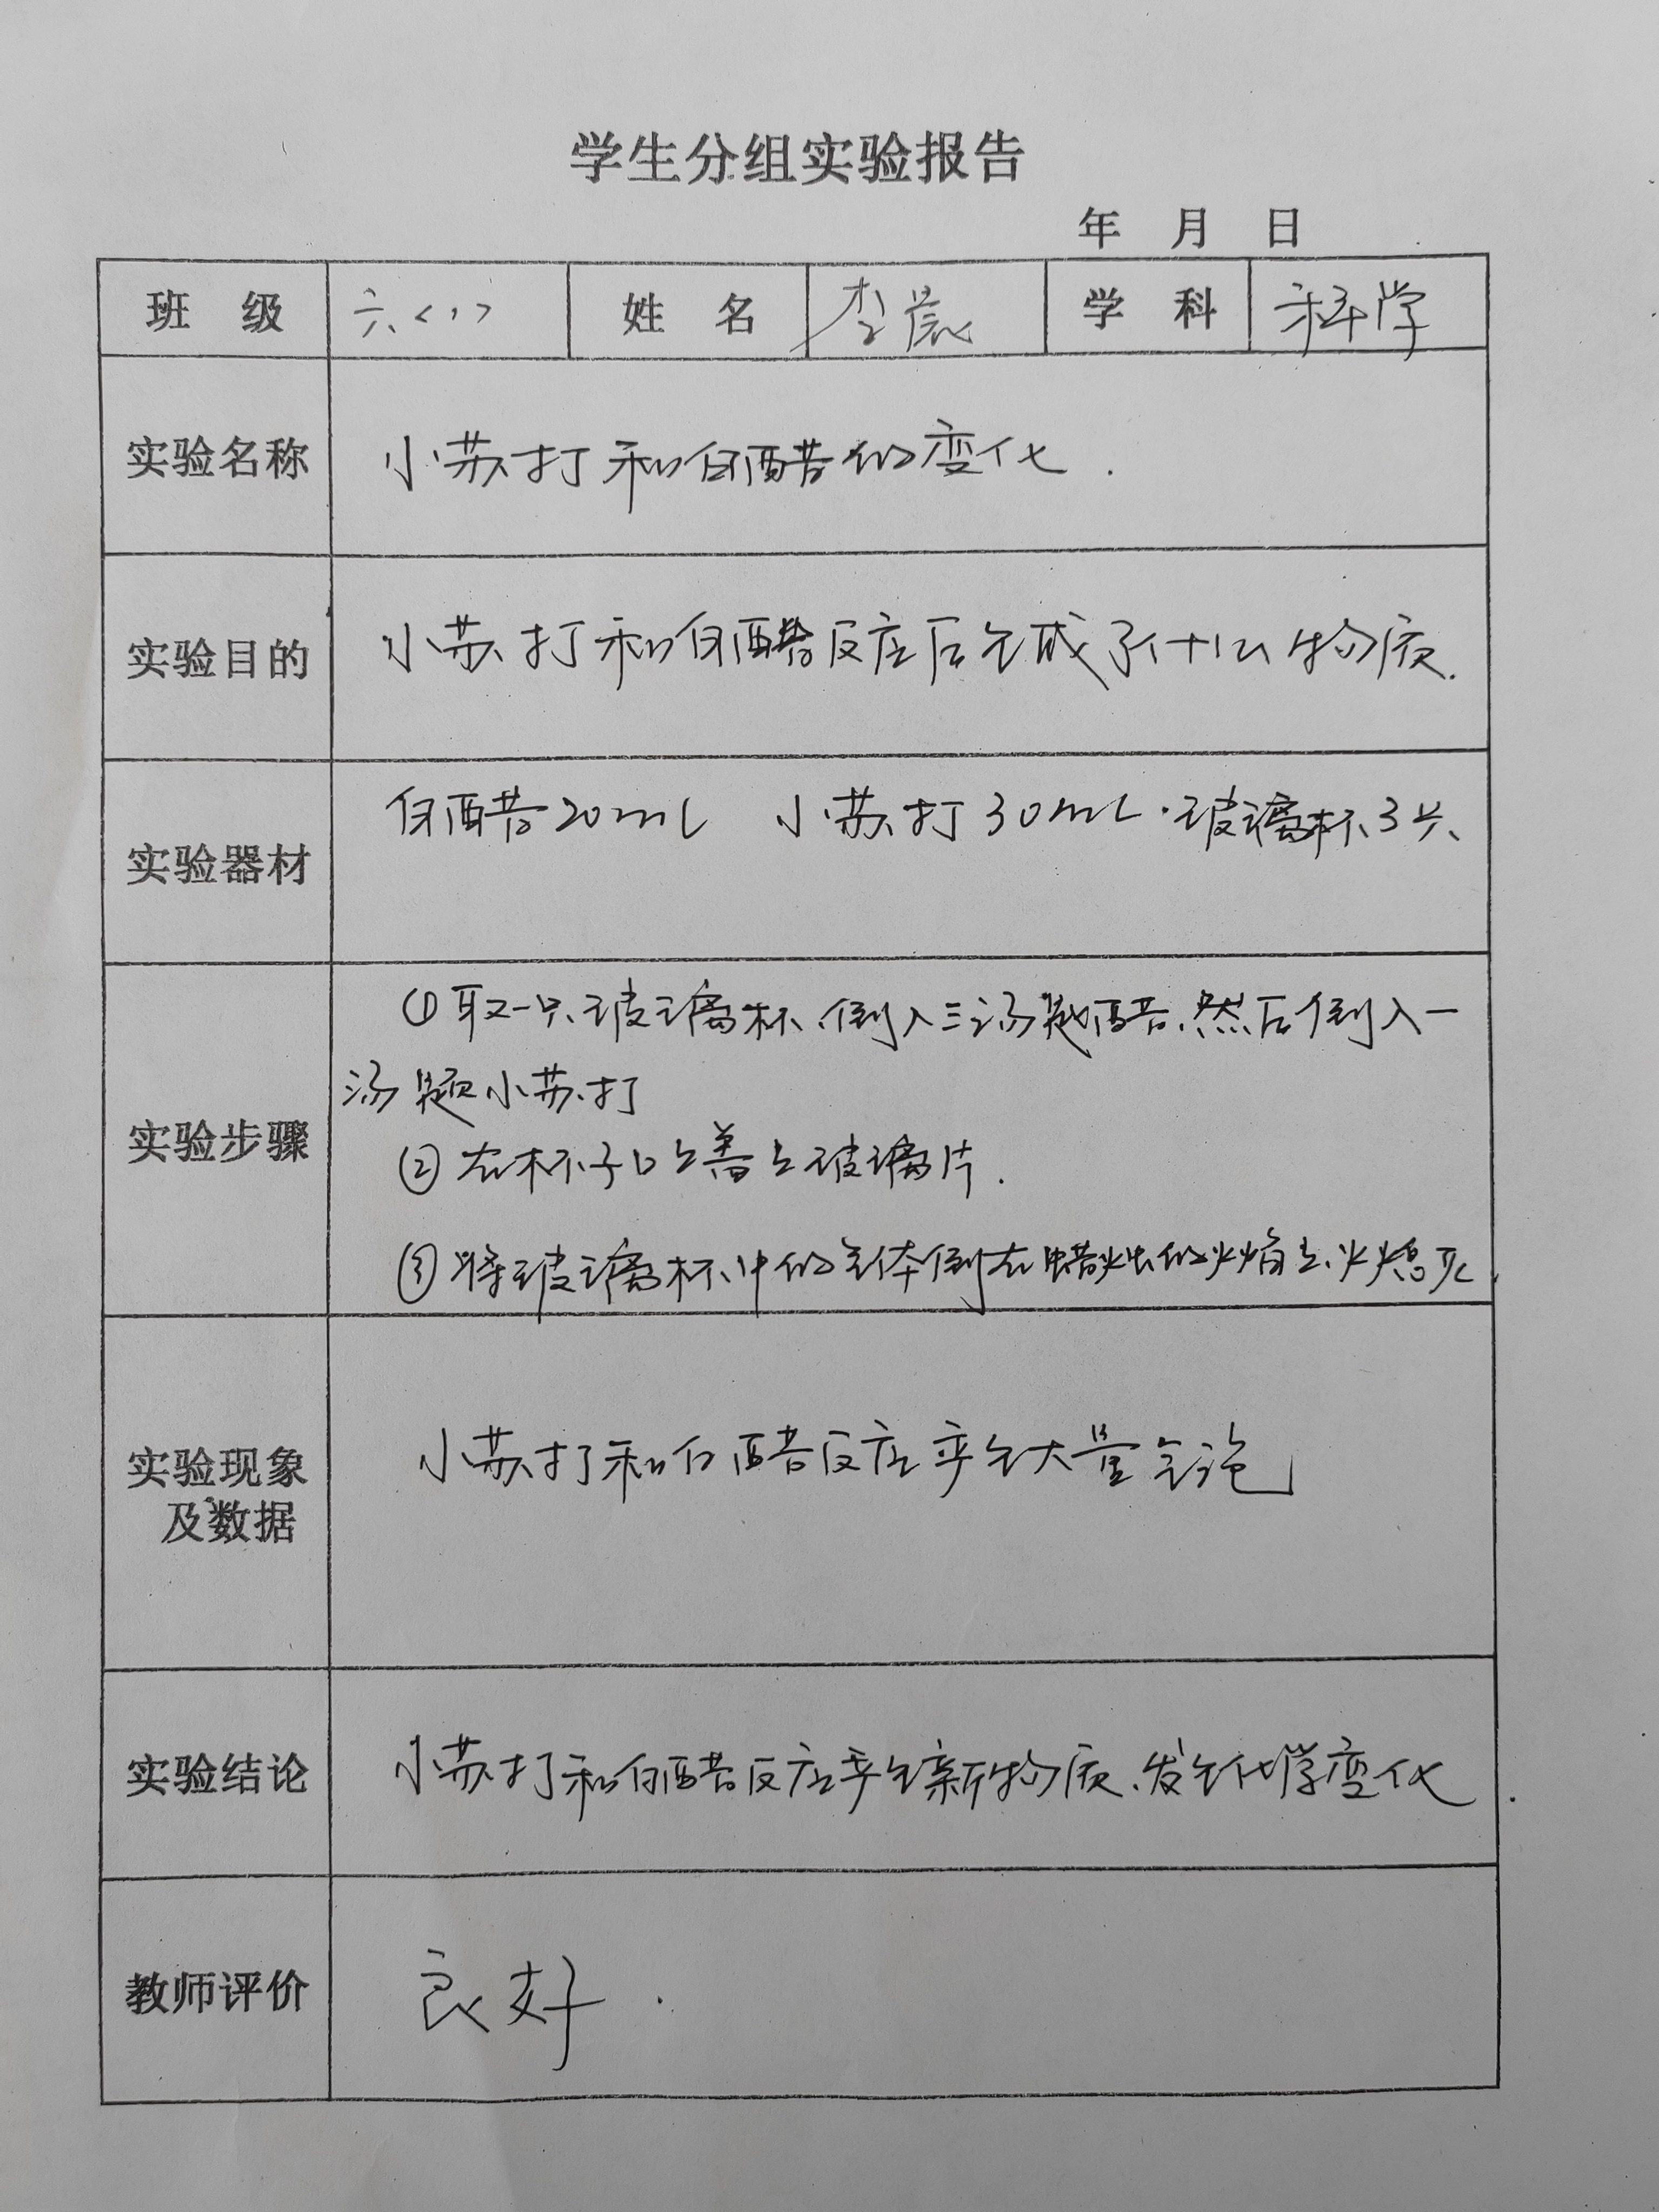 学生分组实验报告
年 月 日
班 级 六<1> 姓 名 李 学 科 科学
实验名称 小苏打和白醋的变化.
实验目的 小苏打和白醋反应后生成了什么物质.
实验器材 白醋20mL 小苏打30mL.玻璃杯3只、
实验步骤 ①取一只玻璃杯.倒入三汤匙白醋,然后倒入一
汤匙小苏打
②在杯子口上盖上玻璃片.
③将玻璃杯中的气体倒在蜡烛的火焰上.火熄灭.
实验现象
及数据 小苏打和白醋反应产生大量气泡
实验结论 小苏打和白醋反应产生新物质、发生化学变化.
教师评价 良好.